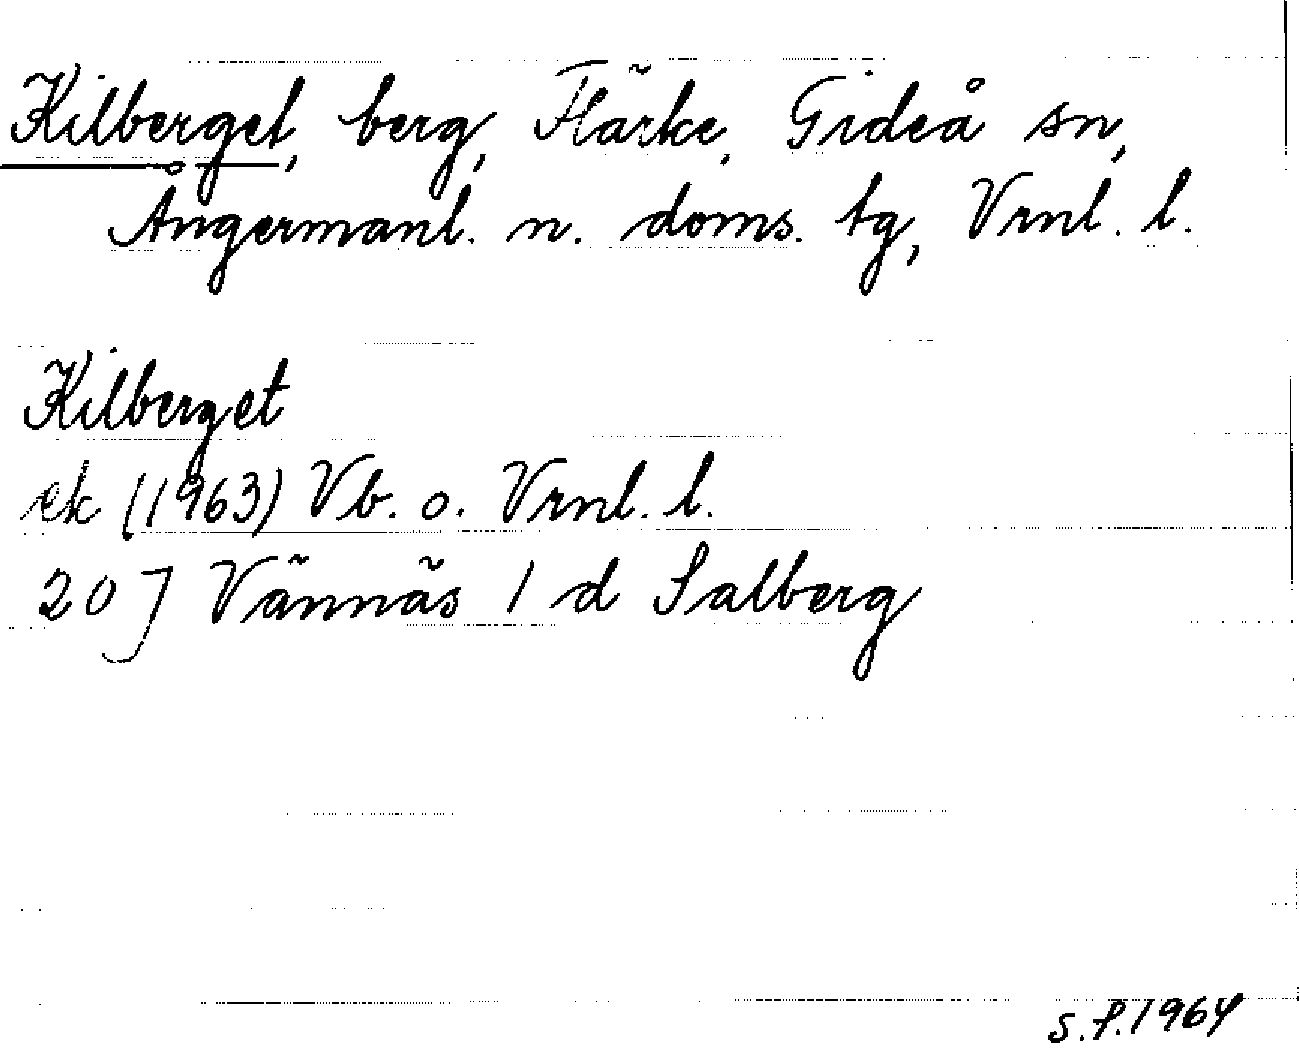 Kilberget, berg, Flärke, Gideå sn,
Ångermanl. n. doms. tg, Vrnl. l.
Kilberget
ek (1963) Vb. o. Vrnl. l.
20 J Vännäs 1 d Salberg
S.P. 1964